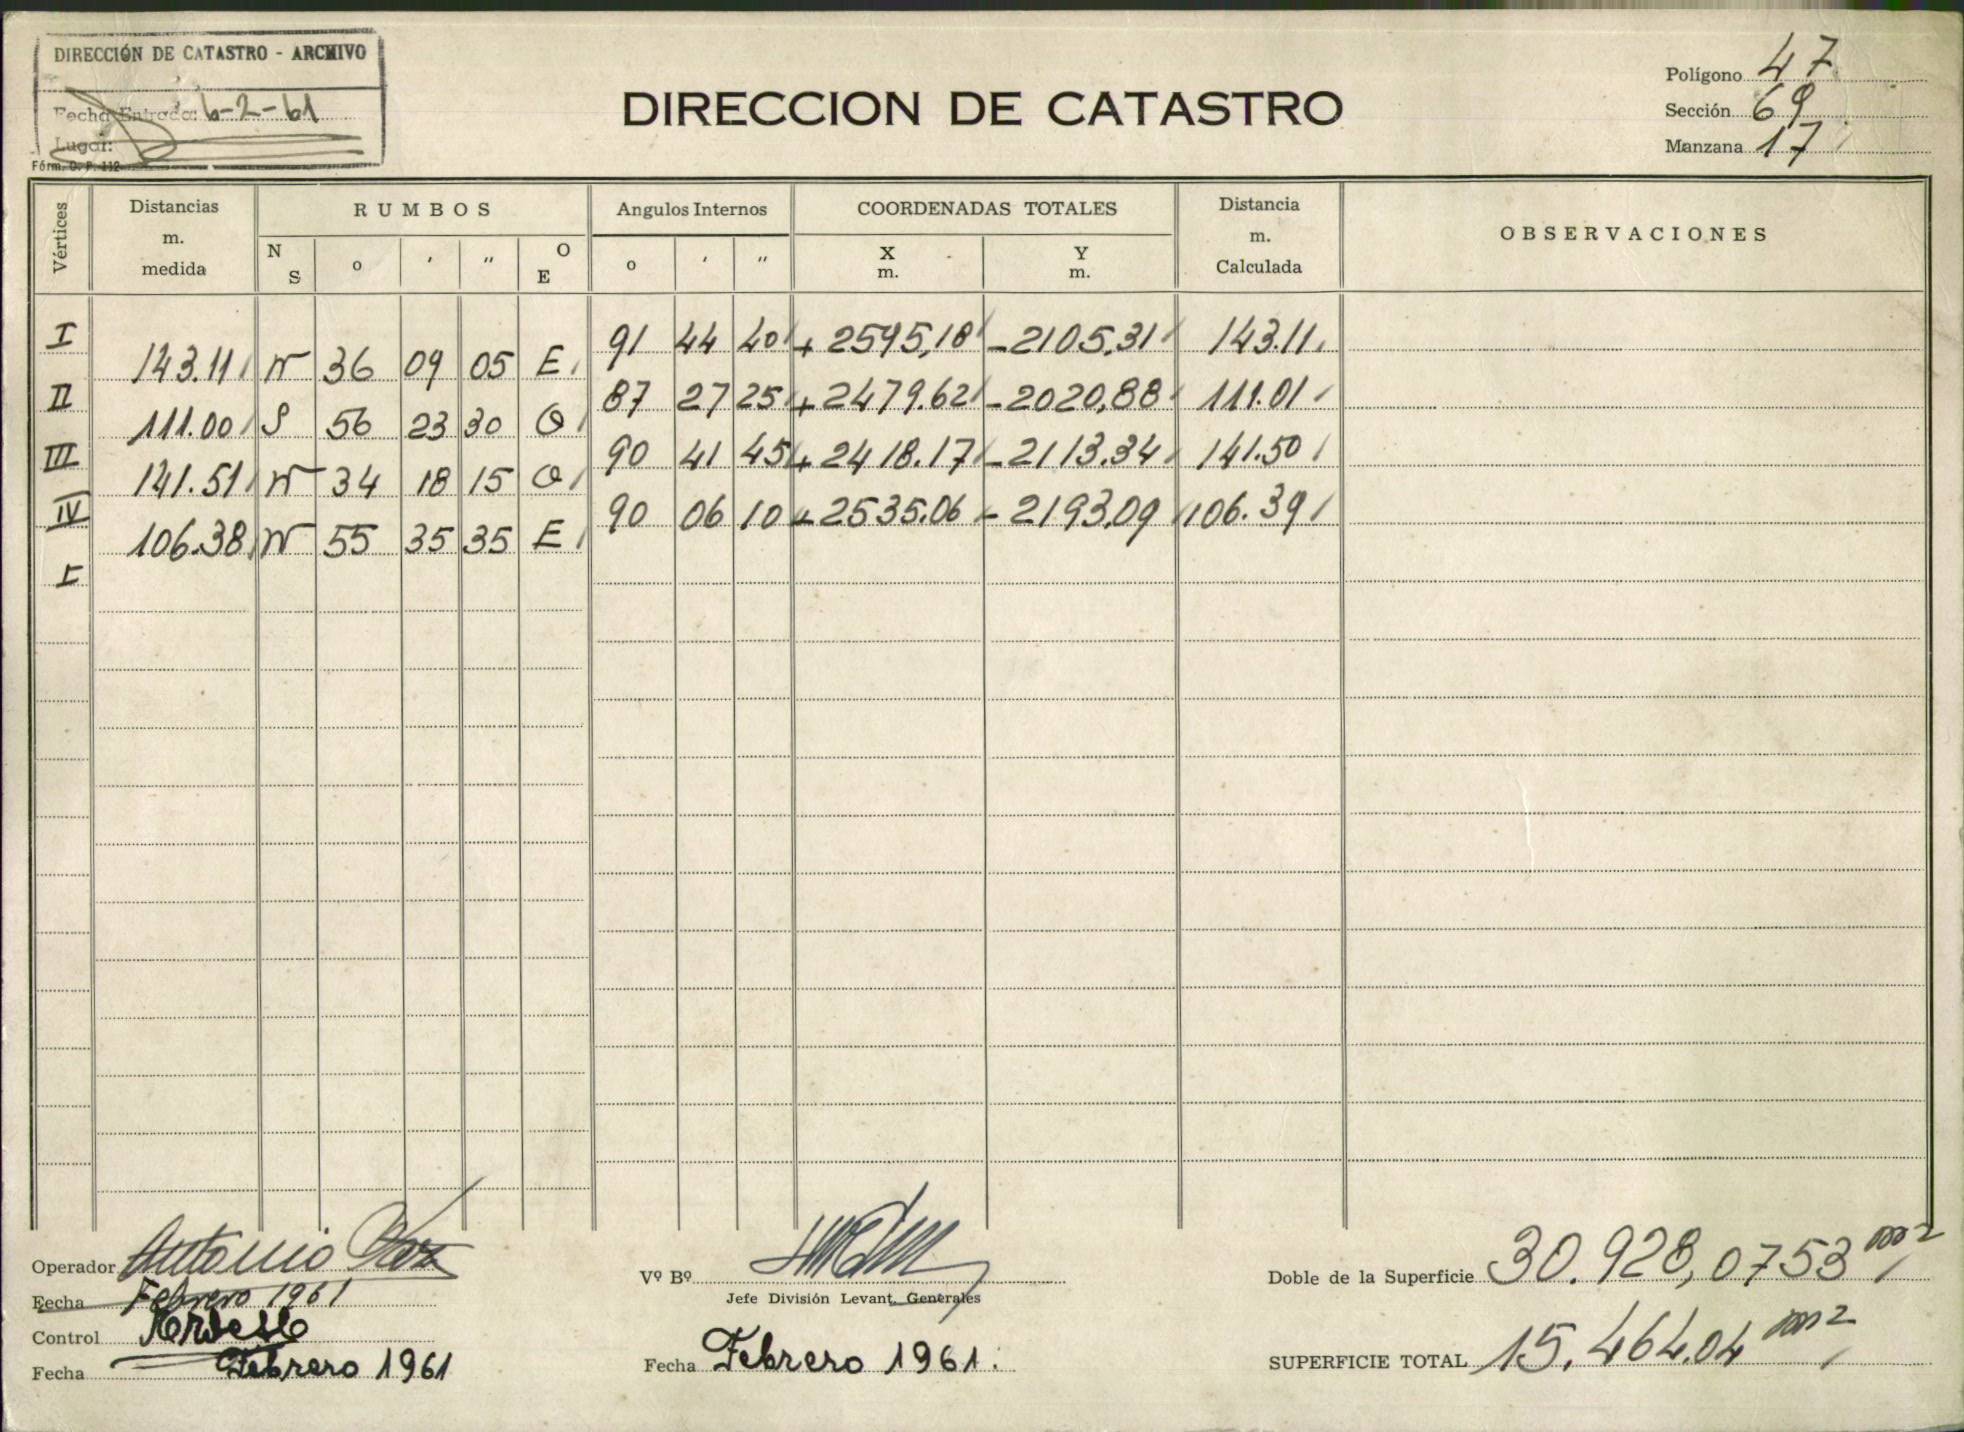 DIRECCIÓN DE CATASTRO - ARCHIVO
Fecha Entrada: 6-2-61
Lugar:
Fórm. D. P. 112
DIRECCION DE CATASTRO
Polígono 47
Sección 69
Manzana 17
Vértices
Distancias m. medida
RUMBOS
Angulos Internos
COORDENADAS TOTALES
Distancia m. Calculada
OBSERVACIONES
N S o ′ ″ O E
o ′ ″
X m. Y m.
I 91 44 40 + 2595,18 - 2105.31 143.11
143.11 N 36 09 05 E
II 87 27 25 + 2479.62 - 2020,88 111.01
111.00 S 56 23 30 O
III 90 41 45 + 2418.17 - 2113.34 141.50
141.51 N 34 18 15 O
IV 90 06 10 + 2535.06 - 2193,09 106.39
106.38 N 55 35 35 E
I
Operador Antonio
Fecha Febrero 1961
Control
Fecha Febrero 1961
Vº Bº
Jefe División Levant. Generales
Fecha Febrero 1961.
Doble de la Superficie 30.928,0753 m2
SUPERFICIE TOTAL 15.464.04 m2